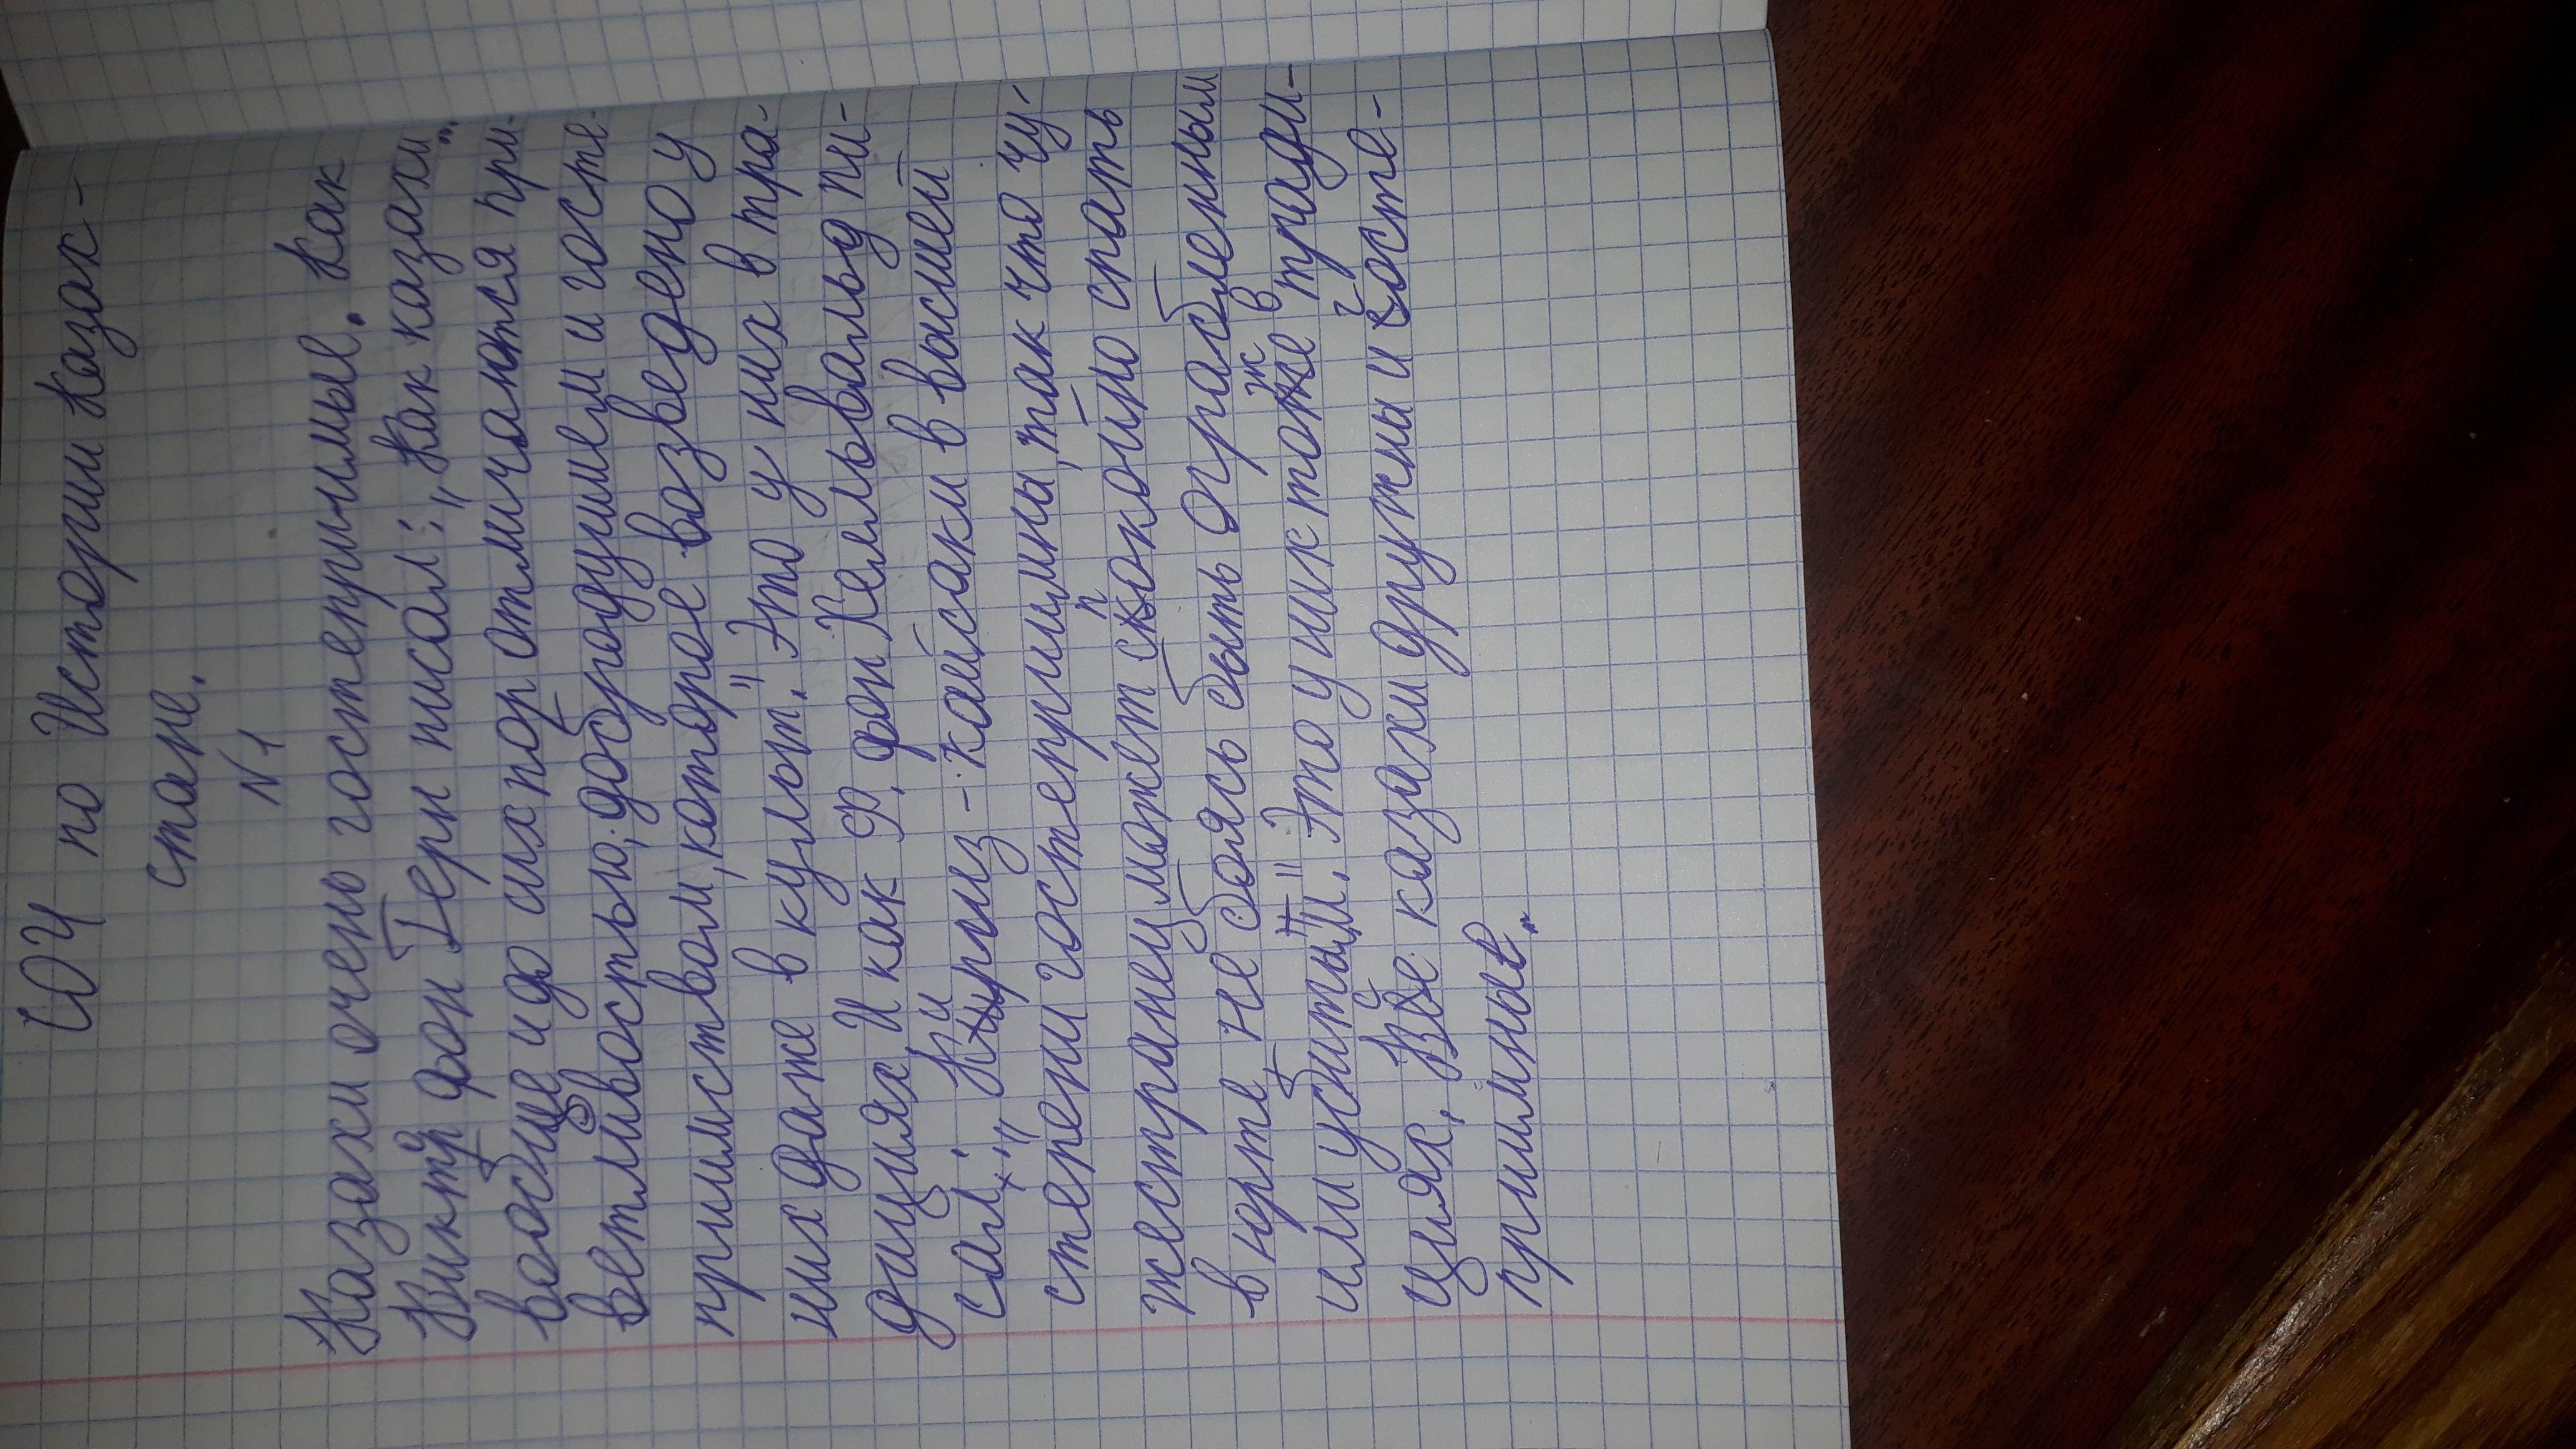 СОЧ по Истории Казах-
стане.
N1
Казахи очень гостеприимные. Как
Виктор фон Герн писал: „Как казахи"
вообще и до сих пор отличаются при-
ветливостью, добродушием и госте-
приимством, которое возведено у
них даже в культ." Это у них в тра-
дициях И как Ф, фон Хельвальд пи-
сал: „Киргиз-кайсаки в высшей
степени гостеприимны, так что чу-
жестранец может спокойно спать
в юрте, не боясь быть ограбленным
или убитым." Это у них тоже в тради-
циях, Все казахи дружны и госте-
приимные.